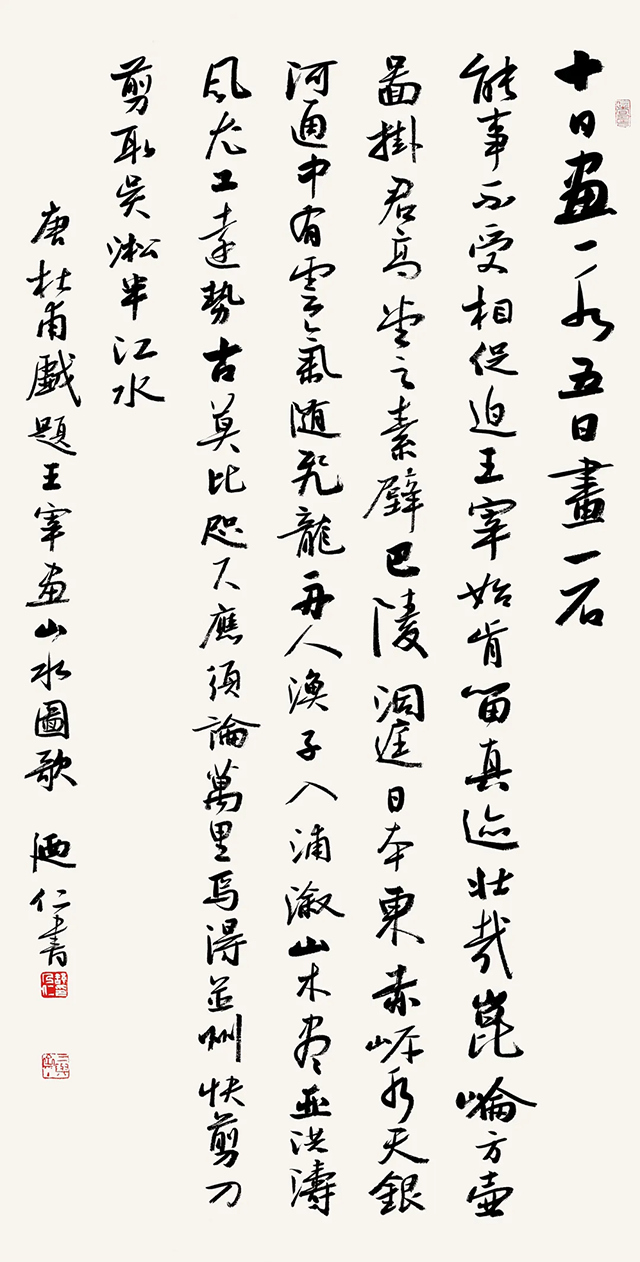 十日画一水五日畫一石
能事不受相促迫王宰始肯留真迹壮哉崑崘方壺
圖掛君高堂之素壁巴陵洞庭日本東赤岸水天銀
河通中有雲氣随飛龍舟人漁子入浦溆山木盡亚洪濤
風尤工遠勢古莫比咫尺應須論萬里焉得並州快剪刀
剪取吳淞半江水
唐杜甫戲題王宰画山水圖歌 陋仁書